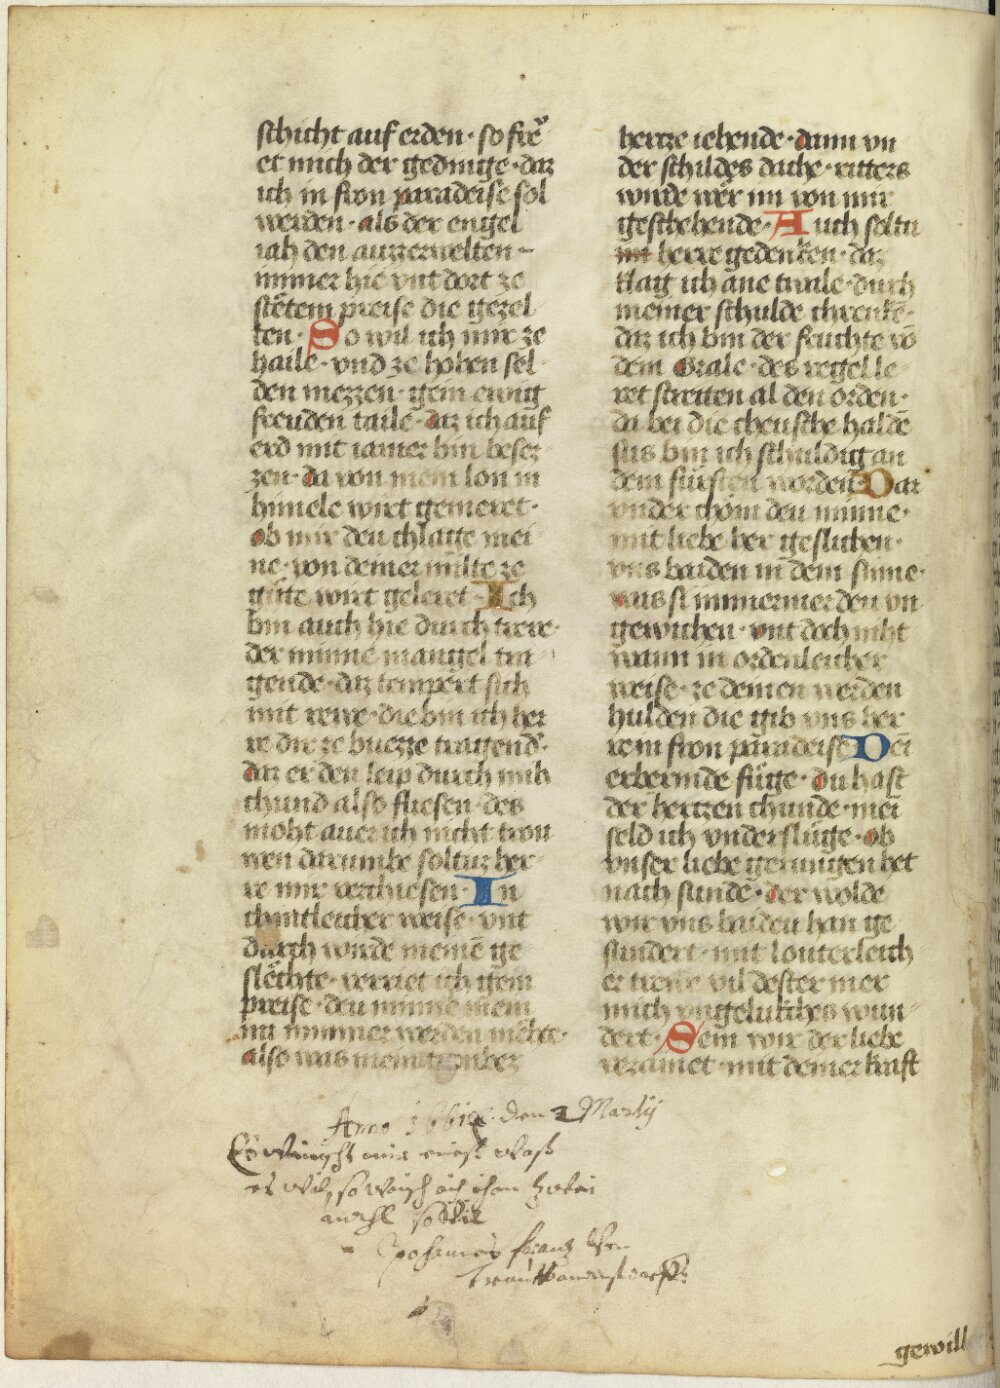 schicht auf erden · so fre͛
et mich der gedinge · daz
ich in fron paradeise sol
werden · als der engel
iah den auzzerwelten –
nimer hie vnt dort ze
stětem preise die gezel
ten · So wil ich mir ze
haile · vnd ze hohen sel
den mezzen · gein ewig
freuden taile · daz ich auf
erd mit iamer bin beser
zen · da von mein lon in
himele wirt gemeret ·
ob mir deu chlage mei
ne · von deiner milte ze
gůte wirt geleret · Ich
bin auch hie durch trewe ·
der minne mangel tra
gende · daz tempert sich
mit rewe · die bin ich her
re dir ze buezze tragend ·
daz er den leip durch mih
chund also fliesen · des
moht auer ich nicht trou
wen darumbe soltuz her
re mir verchiesen · In
chintleicher weise · vnt
durch wirde meine ge
slěchte · verriet ich gein
preise · deu minne mein
im nimmer werden měhte ·
also was mein tumber
hertze iehende · dann vn
der schildes dache · ritters
wirde wěr im von mir
geschehende · Auch soltu
herre gedenken · daz
klag ich ane twale · durch
meiner schulde chrenke ·
daz ich bin der fruchte vō
dem Grale · des regel le
ret streiten al den orden ·
da bei die cheusche halde
sus bin ich schuldig an
dem fürsten worden Dar
vnder chom deu minne ·
mit liebe her geslichen ·
vns baiden in dem sinne ·
was si immermer deu vn
gewichen · vnt doch niht
wann in ordenleicher
weise · ze deinen werden
hulden die gib vns her
re in fron paradeise Dei
erbermde füge · du hast
der hertzen chunde · mei
seld ich vnderslüge · ob
vnser liebe gerungen het
nach sunde · der wolde
wir vns baiden han ge
sundert · mit louterleich
er trewe vil dester mer
mich vngeluckes wun
dert · Sein wir der liebe
veraint · mit deiner kraft
Anno den 2 Martij
es wil, so
Johannes Franz
gewill